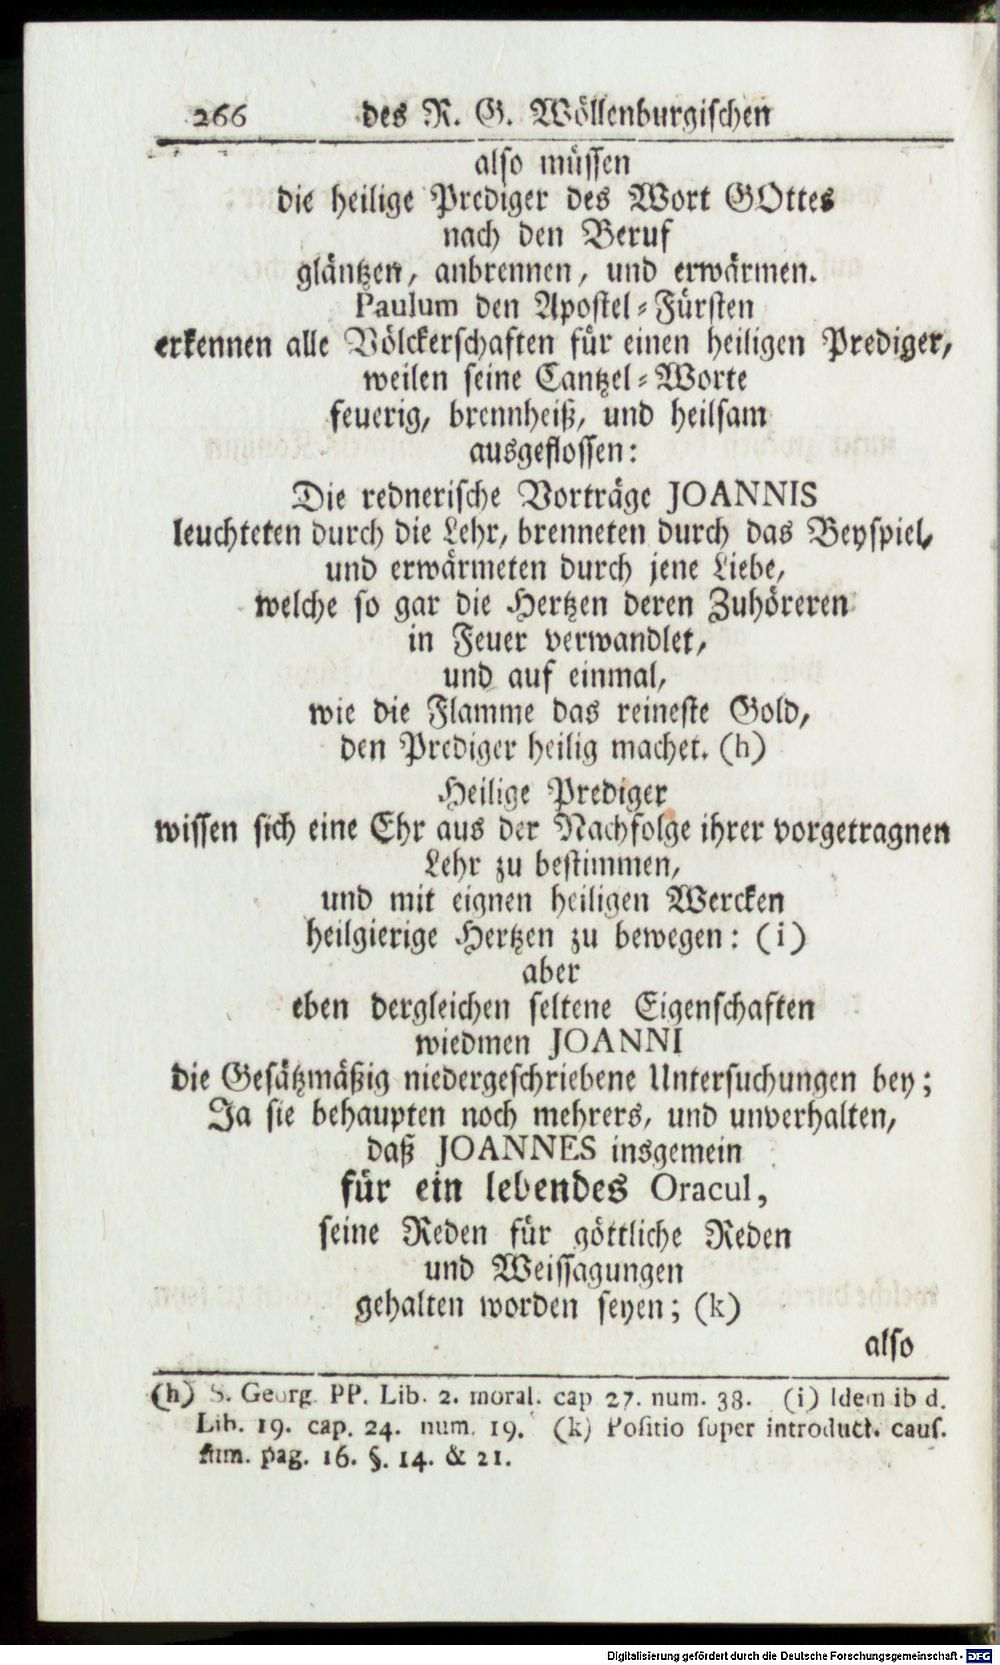 266 des R. G. Wöllenburgischen
also müssen
die heilige Prediger des Wort GOttes
nach den Beruf
gläntzen, anbrennen, und erwärmen.
Paulum den Apostel-Fürsten
erkennen alle Völckerschaften für einen heiligen Prediger,
weilen seine Cantzel-Worte
feuerig, brennheiß, und heilsam
ausgeflossen:
Die rednerische Vorträge JOANNIS
leuchteten durch die Lehr, brenneten durch das Beyspiel,
und erwärmeten durch jene Liebe,
welche so gar die Hertzen deren Zuhöreren
in Feuer verwandlet,
und auf einmal,
wie die Flamme das reineste Gold,
den Prediger heilig machet. (h)
Heilige Prediger
wissen sich eine Ehr aus der Nachfolge ihrer vorgetragnen
Lehr zu bestimmen,
und mit eignen heiligen Wercken
heilgierige Hertzen zu bewegen: (i)
aber
eben dergleichen seltene Eigenschaften
wiedmen JOANNI
die Gesätzmäßig niedergeschriebene Untersuchungen bey;
Ja sie behaupten noch mehrers, und unverhalten,
daß JOANNES insgemein
für ein lebendes Oracul,
seine Reden für göttliche Reden
und Weissagungen
gehalten worden seyen; (k)
also
(h) S. Georg. PP. Lib. 2. moral. cap 27. num. 38. (i) Idem ib d.
Lib. 19. cap. 24. num. 19. (k) Positio super introduct. caus.
sum. pag. 16. §. 14. & 21.
Digitalisierung gefördert durch die Deutsche Forschungsgemeinschaft - DFG